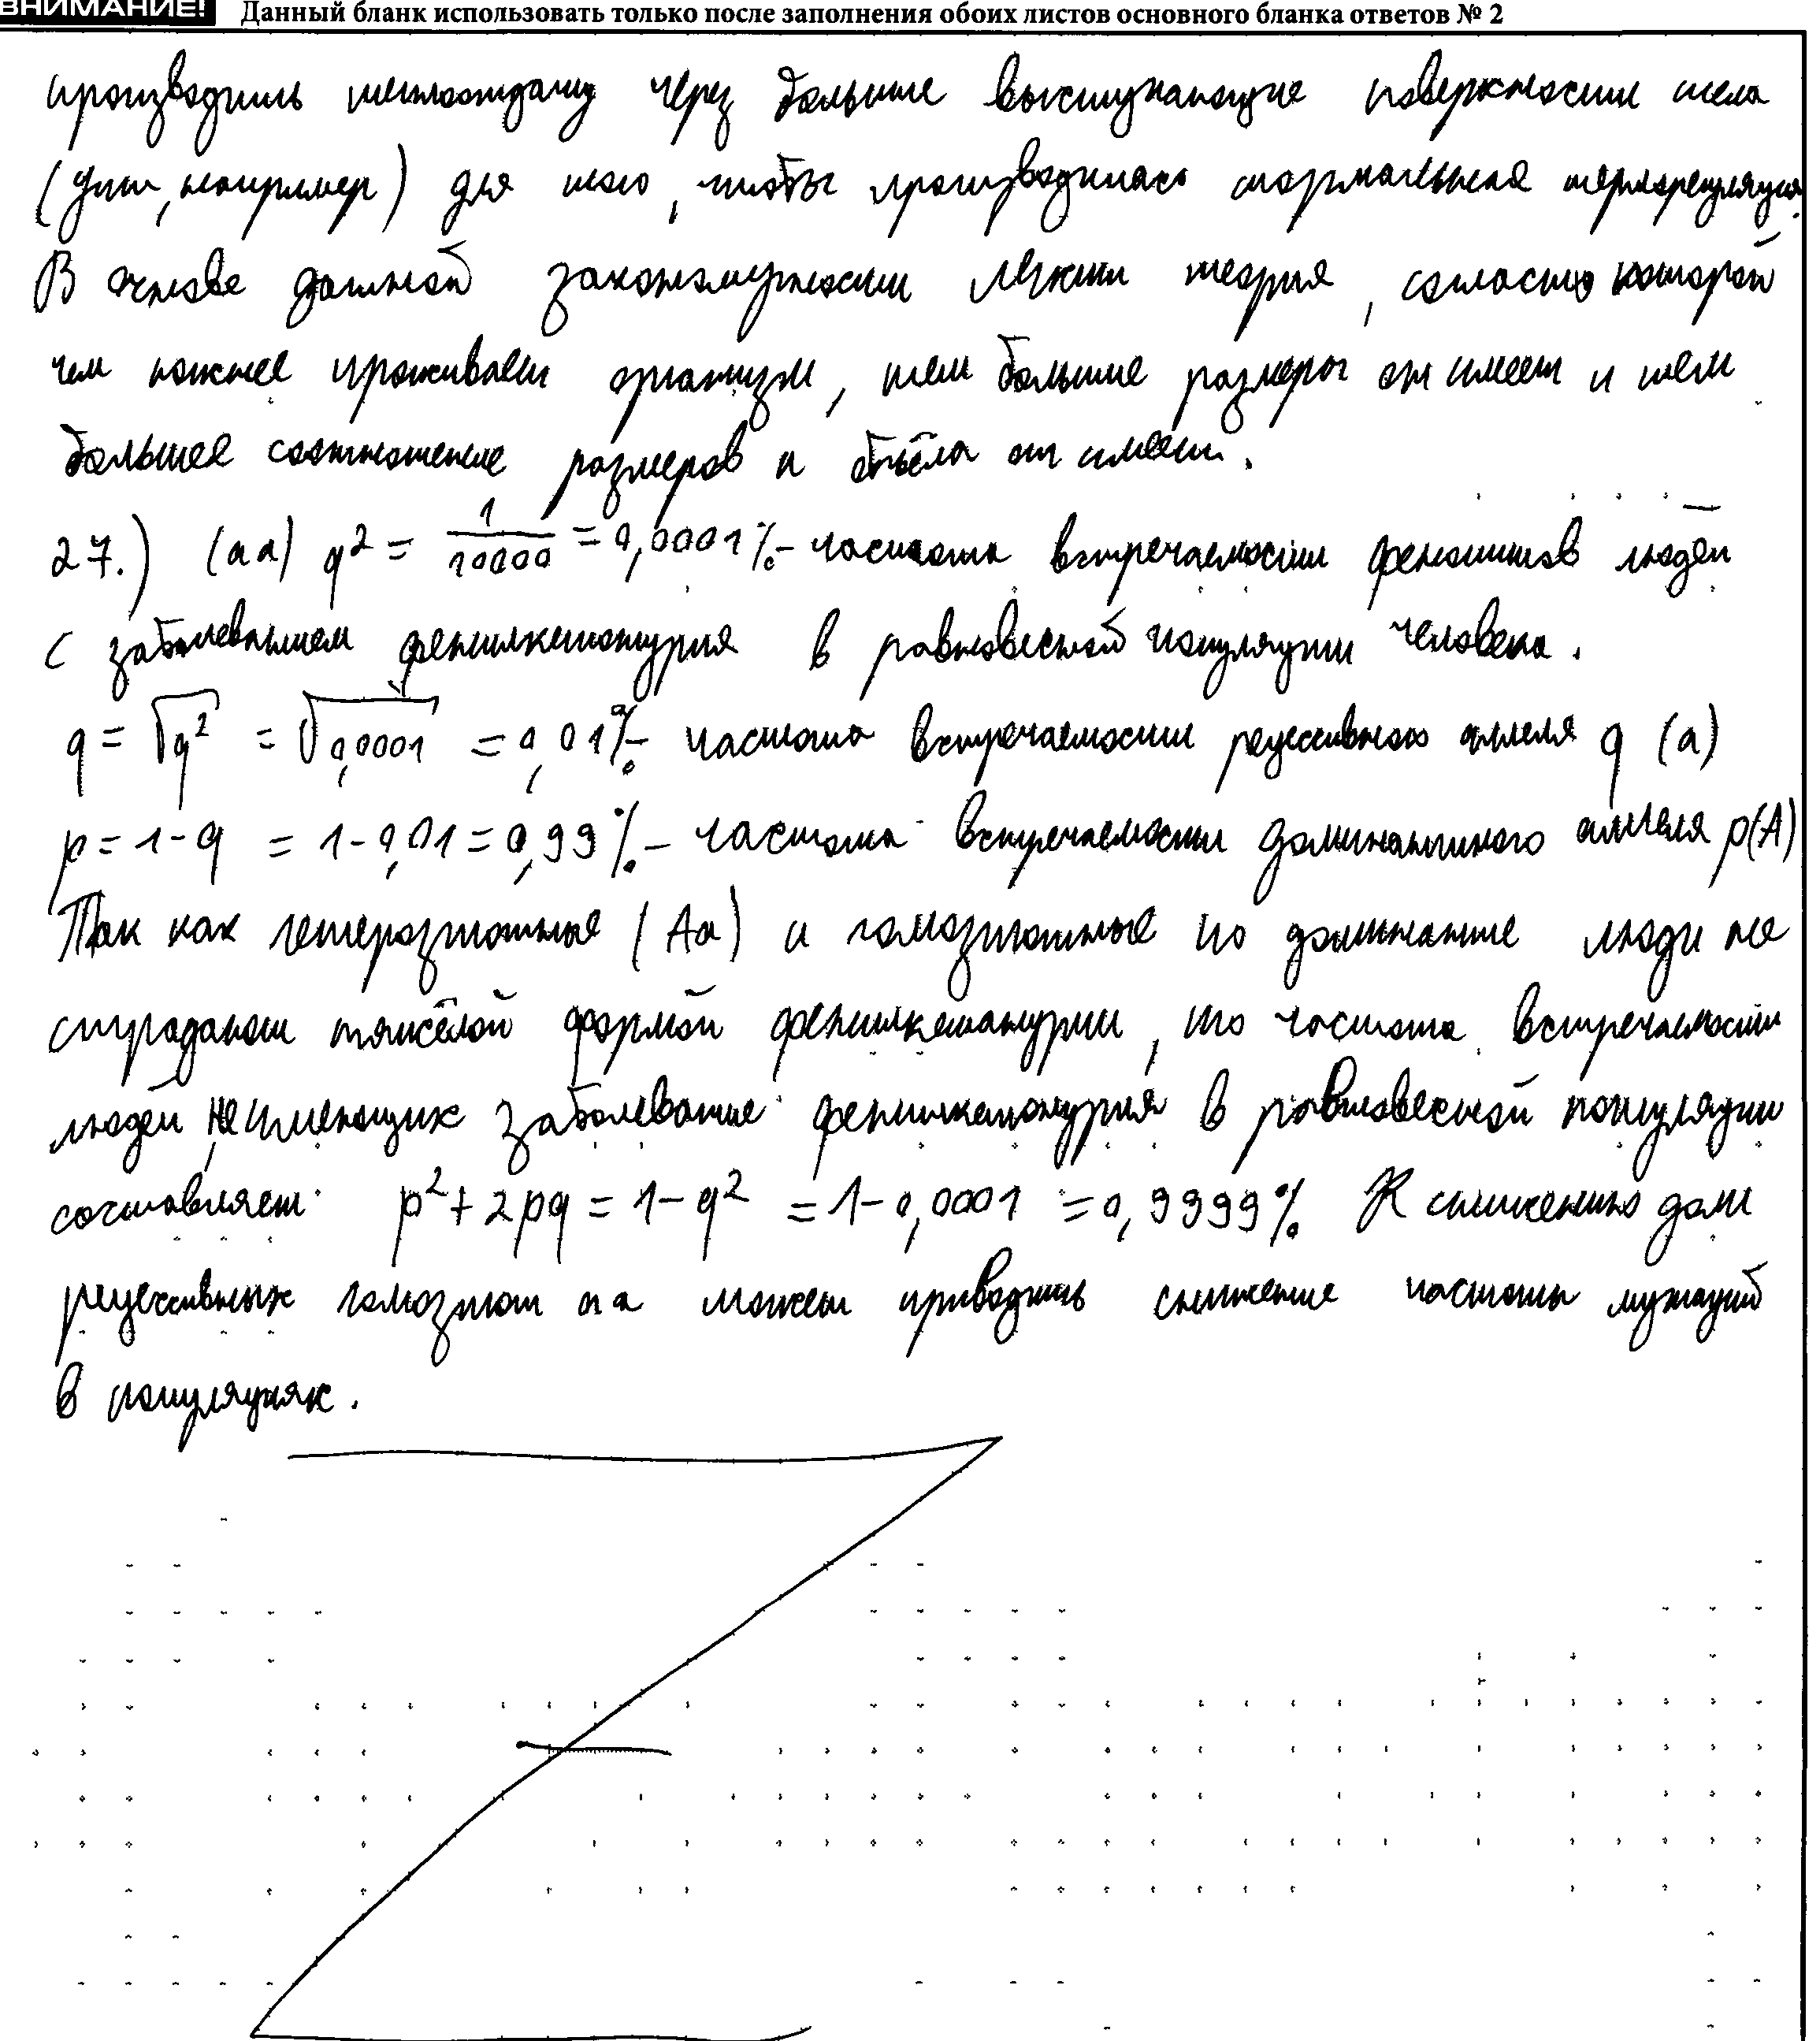 ВНИМАНИЕ! Данный бланк использовать только после заполнения обоих листов основного бланка ответов № 2
производить теплоотдачу через больше выступающие поверхности тела
(уши, например) для того, чтобы производилась нормальная терморегуляция.
В основе данной закономерности лежит теория, согласно которой
чем южнее проживает организм, тем больше размеры он имеет и тем
большее соотношение размеров и объёма он имеет.
27.) (aa) q² = 1/10000 = 0,0001% - частота встречаемости фенотипов людей
с заболеванием фенилкетонурия в равновесной популяции человека.
q = √q² = √0,0001 = 0,01% - частота встречаемости рецессивного аллеля q (a)
p = 1-q = 1-0,01 = 0,99% - частота встречаемости доминантного аллеля p(A)
Так как гетерозиготные (Aa) и гомозиготные по доминанте люди не
страдают тяжёлой формой фенилкетонурии, то частота встречаемости
людей, не имеющих заболевание фенилкетонурия в равновесной популяции
составляет: p² + 2pq = 1-q² = 1-0,0001 = 0,9999% К снижению доли
рецессивных гомозигот аа может приводить снижение частоты мутаций
в популяциях.